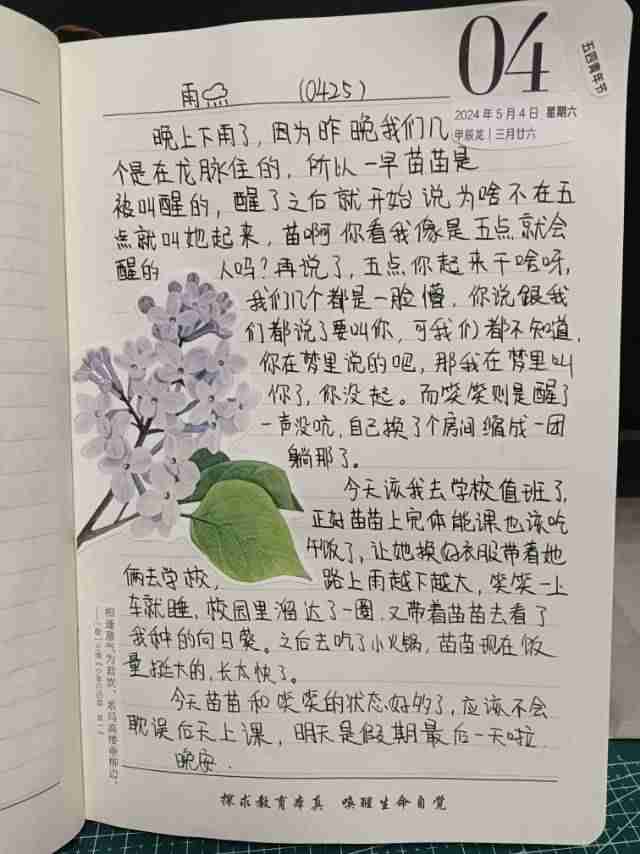 04
五四青年节
2024年5月4日 星期六
甲辰龙｜三月廿六
雨 (0425)
晚上下雨了，因为昨晚我们几
个是在龙脉住的，所以一早苗苗是
被叫醒的，醒了之后就开始说为啥不在五
点就叫她起来，苗啊你看我像是五点就会
醒的 人吗？再说了，五点你起来干啥呀，
我们几个都是一脸懵，你说银我
们都说了要叫你，可我们都不知道，
你在梦里说的吧，那我在梦里叫
你了，你没起。而笑笑则是醒了
一声没吭，自己换了个房间缩成一团
躺那了。
今天该我去学校值班了，
正好苗苗上完体能课也该吃
午饭了，让她换好衣服带着她
俩去学校， 路上雨越下越大，笑笑一上
车就睡，校园里溜达了一圈，又带着苗苗去看了
我种的向日葵。之后去吃了小火锅，苗苗现在饭
量挺大的，长太快了。
今天苗苗和笑笑的状态好多了，应该不会
耽误后天上课，明天是假期最后一天啦
晚安．
相逢意气为君饮，系马高楼垂柳边。
探求教育本真 唤醒生命自觉